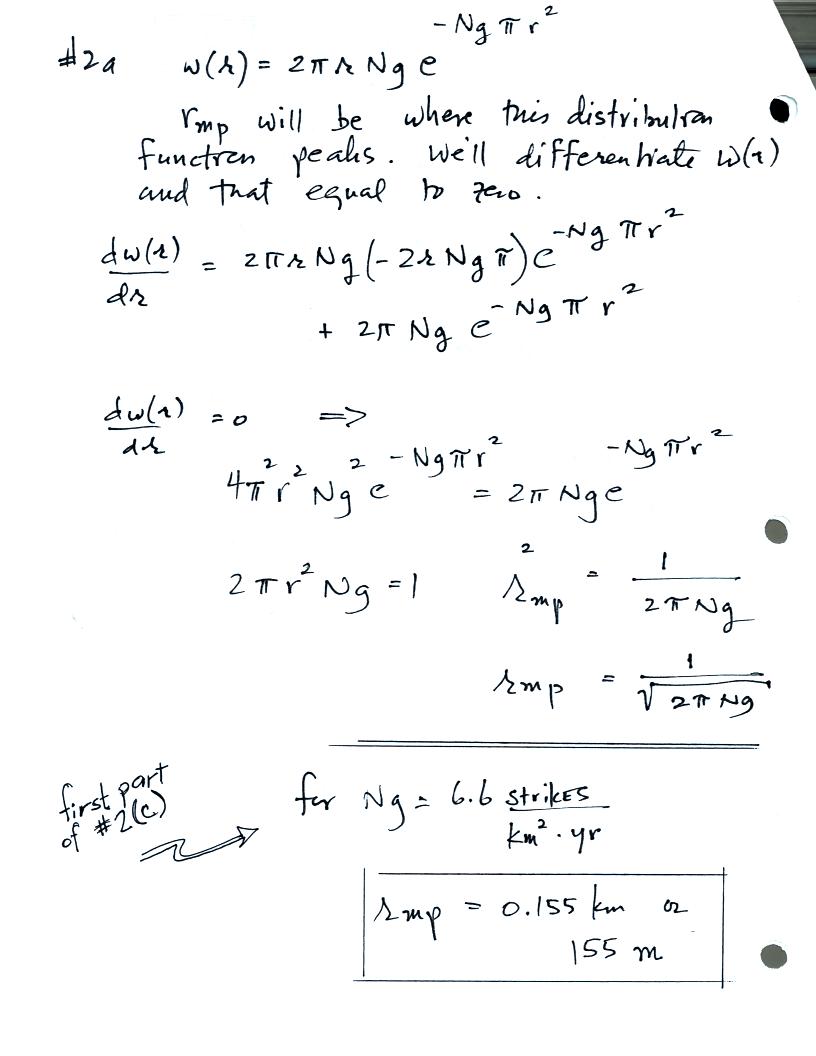 #2a w(r) = 2πr Ng e^(-Ng π r²)
rmp will be where this distribution
function peaks. We'll differentiate w(r)
and that equal to zero.
dw(r)/dr = 2πr Ng (-2r Ng π) e^(-Ng π r²)
+ 2π Ng e^(-Ng π r²)
dw(r)/dr = 0 =>
4π² r² Ng² e^(-Ng π r²) = 2π Ng e^(-Ng π r²)
2πr² Ng = 1 r²mp = 1/(2π Ng)
rmp = 1/√(2π Ng)
first part
of #2(c)
for Ng = 6.6 strikes/(km² · yr)
rmp = 0.155 km or
155 m